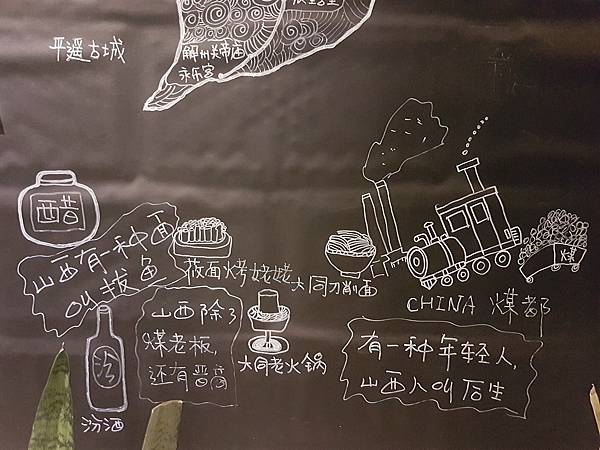 平遥古城
解州关帝庙
永乐宫
醋
山西有一种面
叫拔鱼
莜面烤姥姥
大同刀削面
煤
CHINA 煤都
山西除了
煤老板,
还有晋商
大同老火锅
有一种年轻人,
山西人叫后生
汾
汾酒